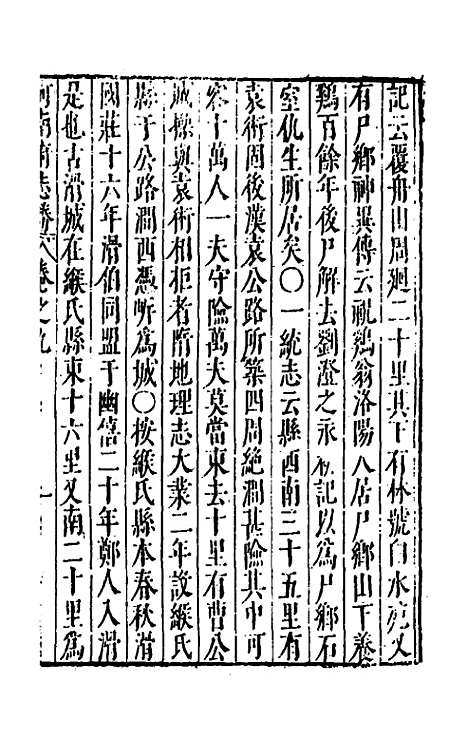 記云覆舟山周廻二十里其下有林號白水苑又
有尸鄉神異傳云祝鷄翁洛陽人居尸鄉山下養
鷄百餘年後尸解去劉澄之永初記以為尸鄉石
室仇生所居矣〇一統志云縣西南三十五里有
袁術固後漢袁公路所築四周絶澗甚險其中可
容十萬人一夫守險萬夫莫當東去十里有曹公
城操與袁術相拒者隋地理志大業二年設緱氏
縣于公路澗西憑岸為城〇按緱氏縣本春秋滑
國莊十六年滑伯同盟于幽僖二十年鄭人入滑
是也古滑城在緱氏縣東十六里又南二十里為
河南府志 卷之九